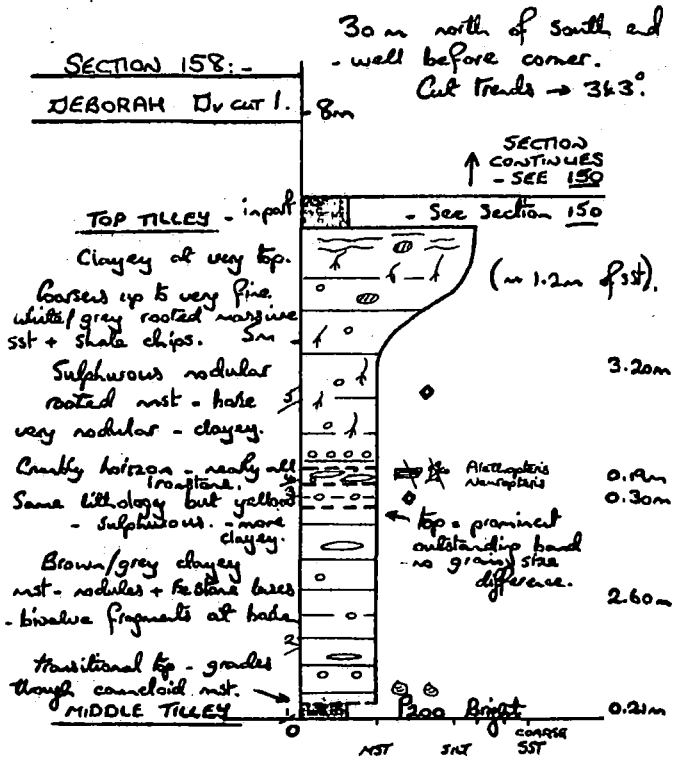 30 m north of south end
- well before corner.
Cut trends → 343°.
SECTION 158:-
DEBORAH Dv CUT 1.
8m
SECTION
CONTINUES
- SEE 150
TOP TILLEY - in part
- See Section 150
Clayey at very top.
(~ 1.2m of sst).
Coarsens up to very fine
white/grey rooted massive
sst + shale chips. 5m
3.20m
Sulphurous nodular
rooted mst - base
very nodular - clayey.
5
Crumbly horizon - nearly all
ironstone.
4
Alethopteris
Neuropteris
0.19m
3
0.30m
Same lithology but yellow
- sulphurous. - more
clayey.
top = prominent
outstanding band
- no grain size
difference.
Brown/grey clayey
mst - nodules + Festone lenses
- bivalve fragments at base
2.60m
2
transitional top - grades
though canneloid mst.
MIDDLE TILLEY
1
P200 Bright
0.21m
0
MST SILT COARSE
SST